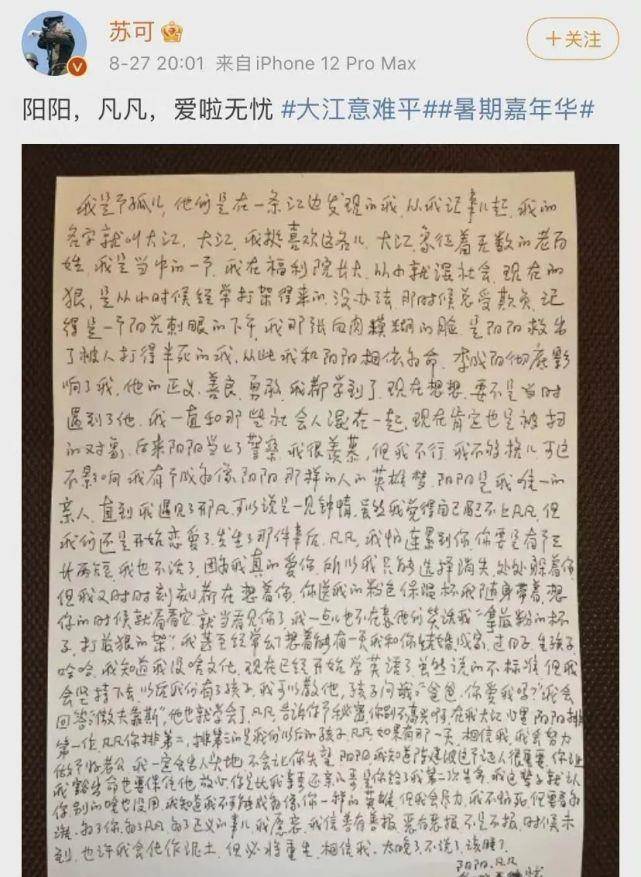 苏可
8-27 20:01 来自 iPhone 12 Pro Max
+关注
阳阳，凡凡，爱啦无忧 #大江意难平##暑期嘉年华#
我是个孤儿，他们是在一条江边发现的我，从我记事儿起，我的
名字就叫大江，大江，我挺喜欢这名儿，大江，象征着无数的老百
姓，我是当中的一个，我在福利院长大，从小就混社会，现在的
狠，是从小时候经常打架得来的，没办法，那时候总受欺负，记
得是一个阳光刺眼的下午，我那张血肉模糊的脸，是阳阳救出
了被人打得半死的我，从此我和阳阳相依为命，李成阳彻底影
响了我，他的正义、善良、勇敢，我都学到了，现在想想，要不是当时
遇到了他，我一直和那些社会人混在一起，现在肯定也是被扫
的对象，后来阳阳当上了警察，我很羡慕，但我不行，我不够格儿，可这
不影响我有个成为像阳阳那样的人的英雄梦，阳阳是我唯一的
亲人，直到我遇见了那凡，可以说是一见钟情，虽然我觉得自己配不上凡凡，但
我们还是开始恋爱了，发生了那件事后，凡凡，我怕连累到你，你要是有个三
长两短，我也不活了，因为我真的爱你，所以我只能选择消失，处处躲着你，
但我又时时刻刻都在想着你，你送我的粉色保温杯我随身带着，想
你的时候就看看它，就当看见你了，我一点儿也不在乎他们笑话我"拿最粉的杯
子，打最狠的架"，我甚至经常幻想着能有一天我和你结婚，成家，过日子，生孩子，
哈哈，我知道我没啥文化，现在已经开始学英语了，虽然说的不标准，但我
会坚持下去，以后我们有了孩子，我可以教他，孩子问我"爸爸，你爱我吗？"我会
回答"做大最斯"，他也就学会了，凡凡，告诉你个秘密，你别不高兴啊，在我大江心里，阳阳排
第一位，凡凡你排第二，排第三的是我们以后的孩子，凡凡，如果有那一天，相信我，我会努力
做个好老公，我一定会出人头地，不会让你失望，阳阳，我知道陈建波这个证人很重要，你让
我豁出命也要保住他，放心，你是比我亲哥还亲的哥，是你给了我第二次生命，我这辈子就认
你，别的啥也没用，我知道我不可能成为像你一样的英雄，但我会尽力，我不怕死，但要看为
谁，为了你，为了凡凡，为了正义的事儿，我愿意，我信善有善报，恶有恶报，不是不报，时候未
到，也许我会化作泥土，但必将重生，相信我，太晚了，不说了，该睡了。
阳阳，凡凡